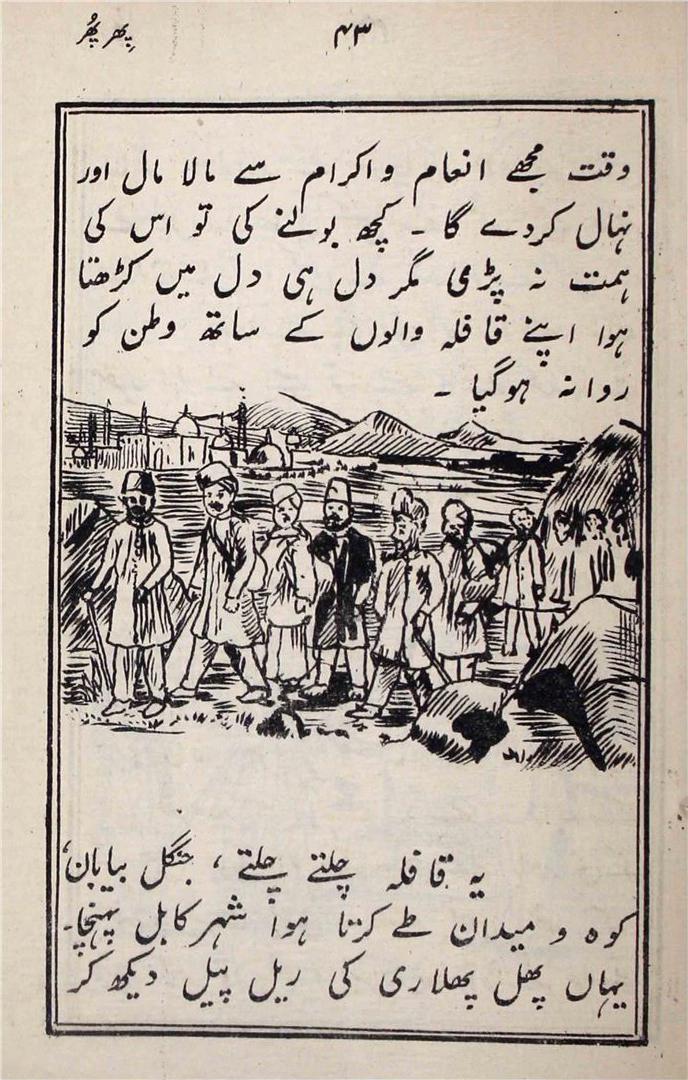 پھر پھُر
۴۳
وقت مجھے انعام و اکرام سے مالا مال اور
نہال کردے گا ۔ کچھ بولنے کی تو اس کی
ہمت نہ پڑی مگر دل ہی دل میں کڑھتا
ہوا اپنے قافلہ والوں کے ساتھ وطن کو
روانہ ہوگیا ۔
یہ قافلہ چلتے چلتے ، جنگل بیابان،
کوہ و میدان طے کرتا ہوا شہر کابل پہنچا۔
یہاں پھل پھلاری کی ریل پیل دیکھ کر